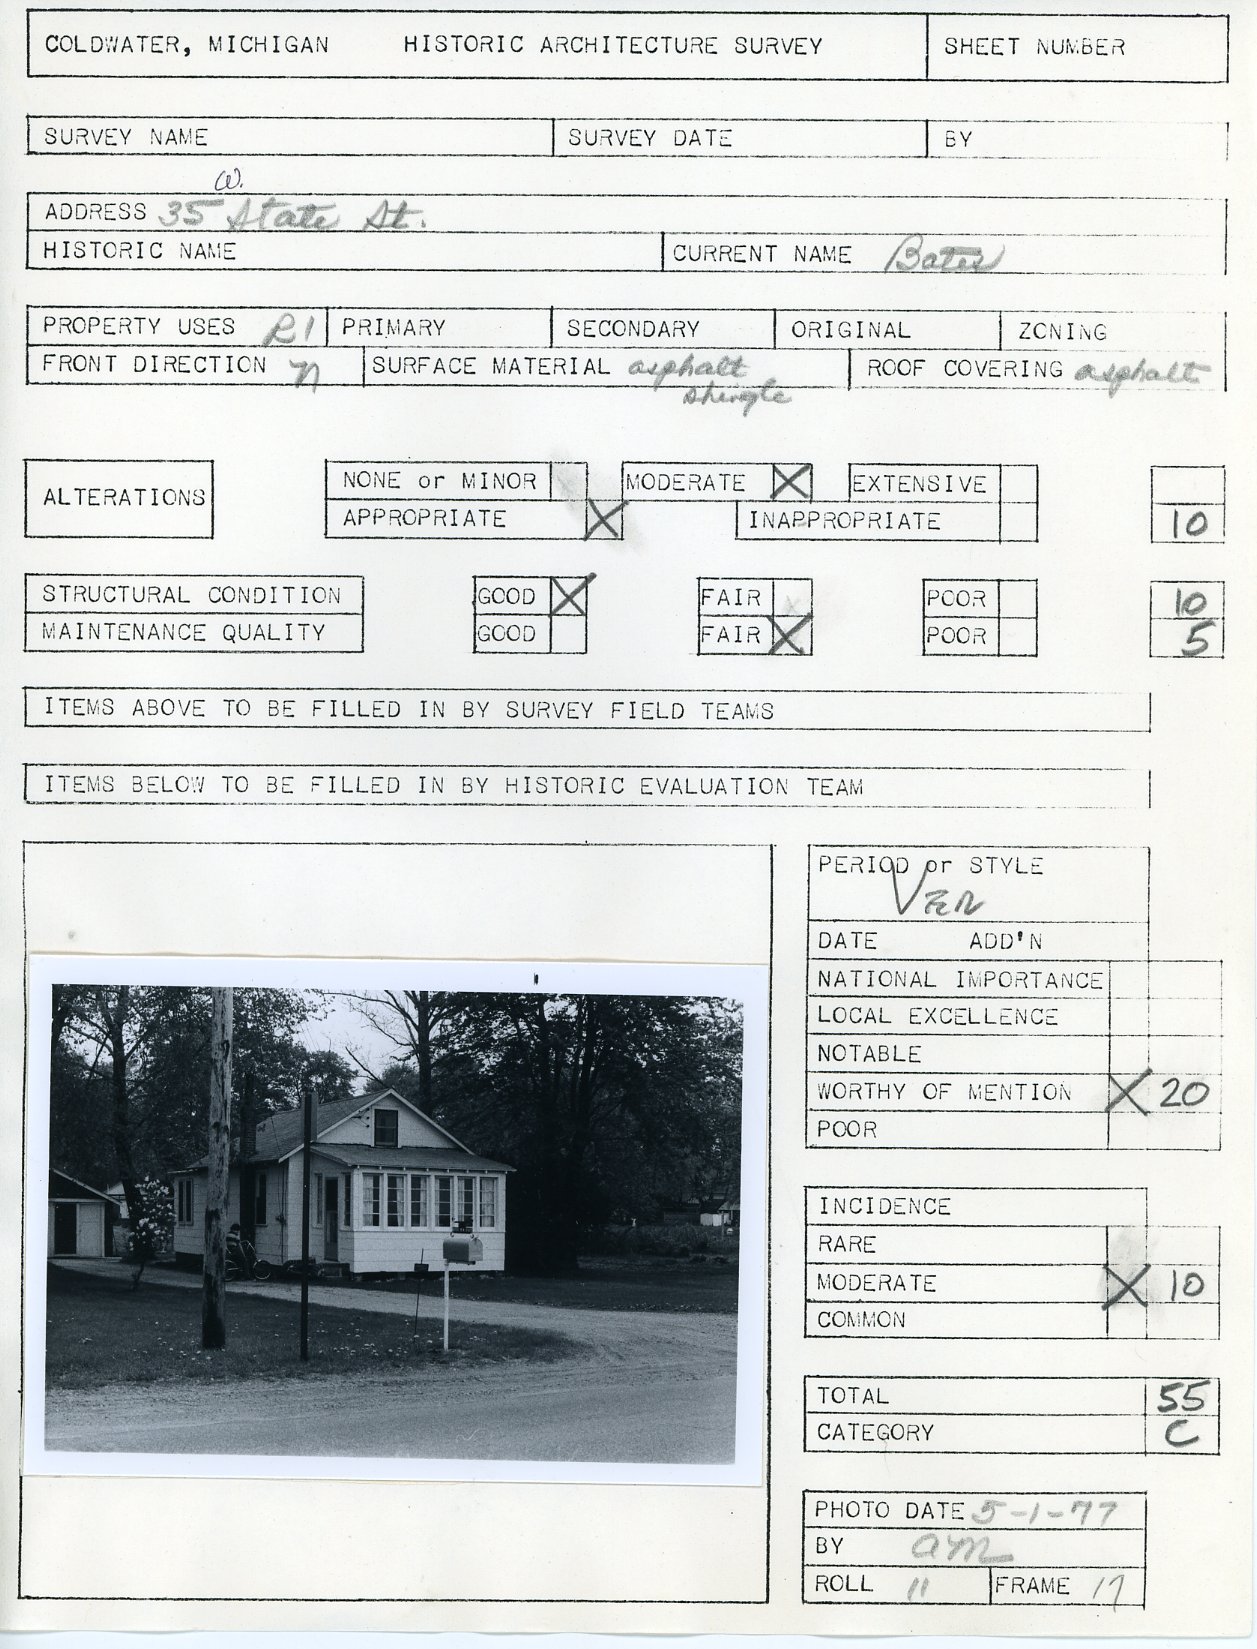 COLDWATER, MICHIGAN HISTORIC ARCHITECTURE SURVEY SHEET NUMBER
SURVEY NAME SURVEY DATE BY
W.
ADDRESS 35 State St.
HISTORIC NAME CURRENT NAME Bates
PROPERTY USES R1 PRIMARY SECONDARY ORIGINAL ZONING
FRONT DIRECTION N SURFACE MATERIAL asphalt ROOF COVERING asphalt
shingle
ALTERATIONS NONE or MINOR MODERATE X EXTENSIVE
APPROPRIATE X INAPPROPRIATE 10
STRUCTURAL CONDITION GOOD X FAIR POOR 10
MAINTENANCE QUALITY GOOD FAIR X POOR 5
ITEMS ABOVE TO BE FILLED IN BY SURVEY FIELD TEAMS
ITEMS BELOW TO BE FILLED IN BY HISTORIC EVALUATION TEAM
PERIOD or STYLE
VER
DATE ADD'N
NATIONAL IMPORTANCE
LOCAL EXCELLENCE
NOTABLE
WORTHY OF MENTION X 20
POOR
INCIDENCE
RARE
MODERATE X 10
COMMON
TOTAL 55
CATEGORY C
PHOTO DATE 5-1-77
BY am
ROLL 11 FRAME 17